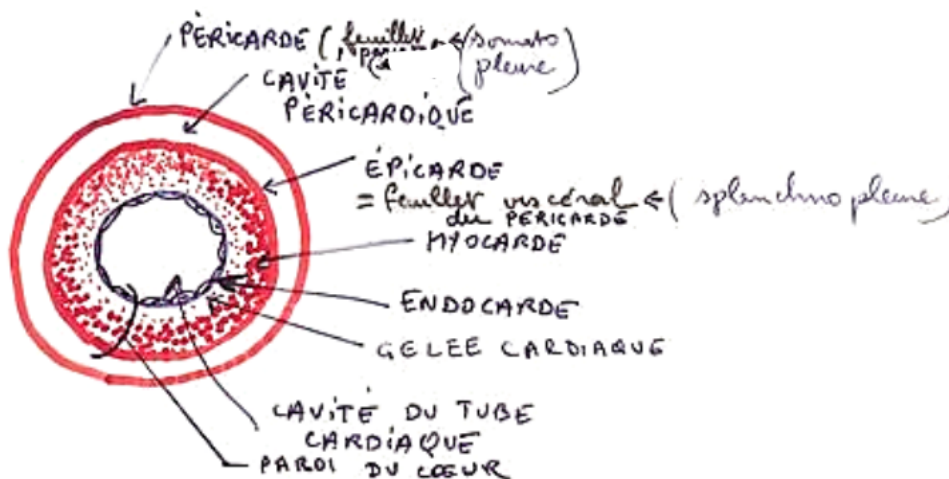 PÉRICARDE (feuillet pariétal ← (somato
pleure)
CAVITÉ
PÉRICARDIQUE
ÉPICARDE
= feuillet viscéral ← (splanchnopleure)
du PÉRICARDE
MYOCARDE
ENDOCARDE
GELÉE CARDIAQUE
CAVITÉ DU TUBE
CARDIAQUE
PAROI DU CŒUR